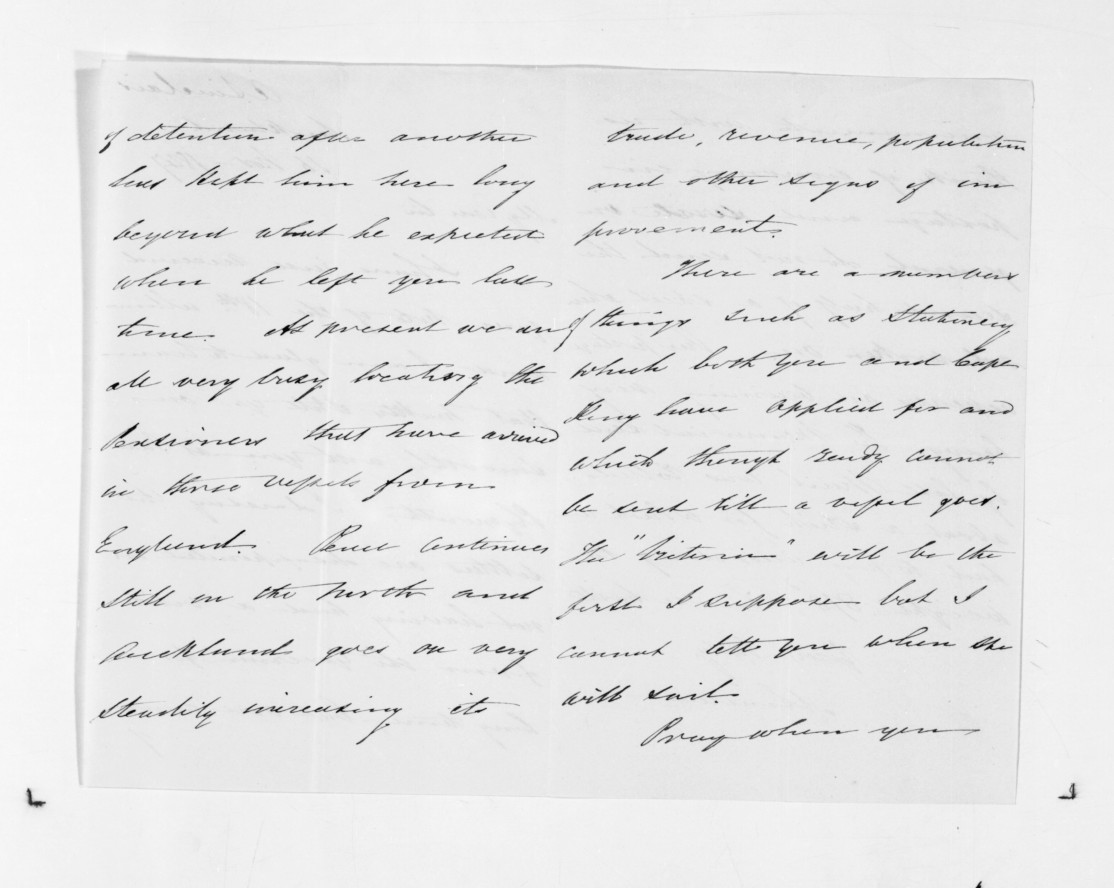 of detention after another
has kept him here long
beyond what he expected
when he left you last
time. At present we are
all very busy locating the
Pensioners that have arrived
in three vessels from
England. Peace continues
still in the North and
Auckland goes on very
steadily increasing its
trade, revenue, population
and other signs of im
provement.
There are a number
of things such as Stationery
which both you and Capt
King have applied for and
which though ready cannot
be sent till a vessel goes.
The "Victoria" will be the
first I suppose but I
cannot tell you when she
will sail.
Pray when you